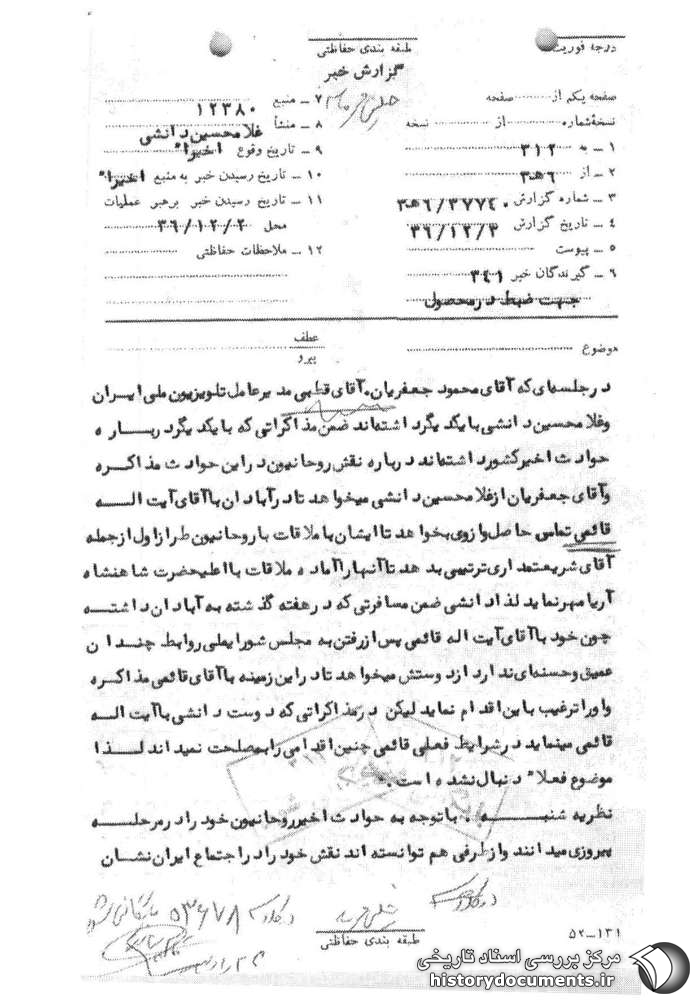 درجه فوریت
طبقه بندی حفاظتی
گزارش خبر
خیلی محرمانه
صفحه یکم از صفحه
نسخه شماره از نسخه
۱ ــ به ۳۱۲
۲ ــ از ۶ه۳
۳ ــ شماره گزارش ۶ه۳/۳۷۷۴۰
۴ ــ تاریخ گزارش ۳۶/۱۲/۳
۵ ــ پیوست
۶ ــ گیرندگان خبر ۳۴۱
جهت ضبط در محصول
۷ ــ منبع ۱۲۳۸۰
۸ ــ منشأ غلامحسین دانشی
۹ ــ تاریخ وقوع اخیرا"
۱۰ ــ تاریخ رسیدن خبر به منبع اخیرا"
۱۱ ــ تاریخ رسیدن خبر برهبر عملیات
محل ۳۶/۱۲/۲
۱۲ ــ ملاحظات حفاظتی
موضوع
عطف
پیرو
در جلسه‌ای که آقای محمود جعفریان، آقای قطبی مدیرعامل تلویزیون ملی ایران
وغلامحسین دانشی بایکدیگر داشته‌اند ضمن مذاکراتی که بایکدیگر درباره
حوادث اخیر کشور داشته‌اند درباره نقش روحانیون در این حوادث مذاکره
وآقای جعفریان از غلامحسین دانشی میخواهد تا در آبادان با آقای آیت الله
قائمی تماس حاصل و از وی بخواهد تا ایشان با ملاقات با روحانیون طراز اول از جمله
آقای شریعتمداری ترتیبی بدهد تا آنها را آماده ملاقات با اعلیحضرت شاهنشاه
آریامهر نماید لذا دانشی ضمن مسافرتی که در هفته گذشته به آبادان داشته
چون خود با آقای آیت اله قائمی پس از رفتن به مجلس شورایملی روابط چندان
عمیق و حسنه‌ای ندارد از دوستش میخواهد تا در این زمینه با آقای قائمی مذاکره
و او را ترغیب باین اقدام نماید لیکن در مذاکراتی که دوست دانشی با آیت اله
قائمی مینماید در شرایط فعلی قائمی چنین اقدامی را بمصلحت نمیداند لذا
موضوع فعلا" دنبال نشده است.
نظریه شنبه . باتوجه به حوادث اخیر روحانیون خود را در مرحله
پیروزی میدانند و از طرفی هم توانسته اند نقش خود را در اجتماع ایران نشان
خیلی محرمانه
۵۳۶۷۸
طبقه بندی حفاظتی
۵۲-۱۳۱
مرکز بررسی اسناد تاریخی
historydocuments.ir